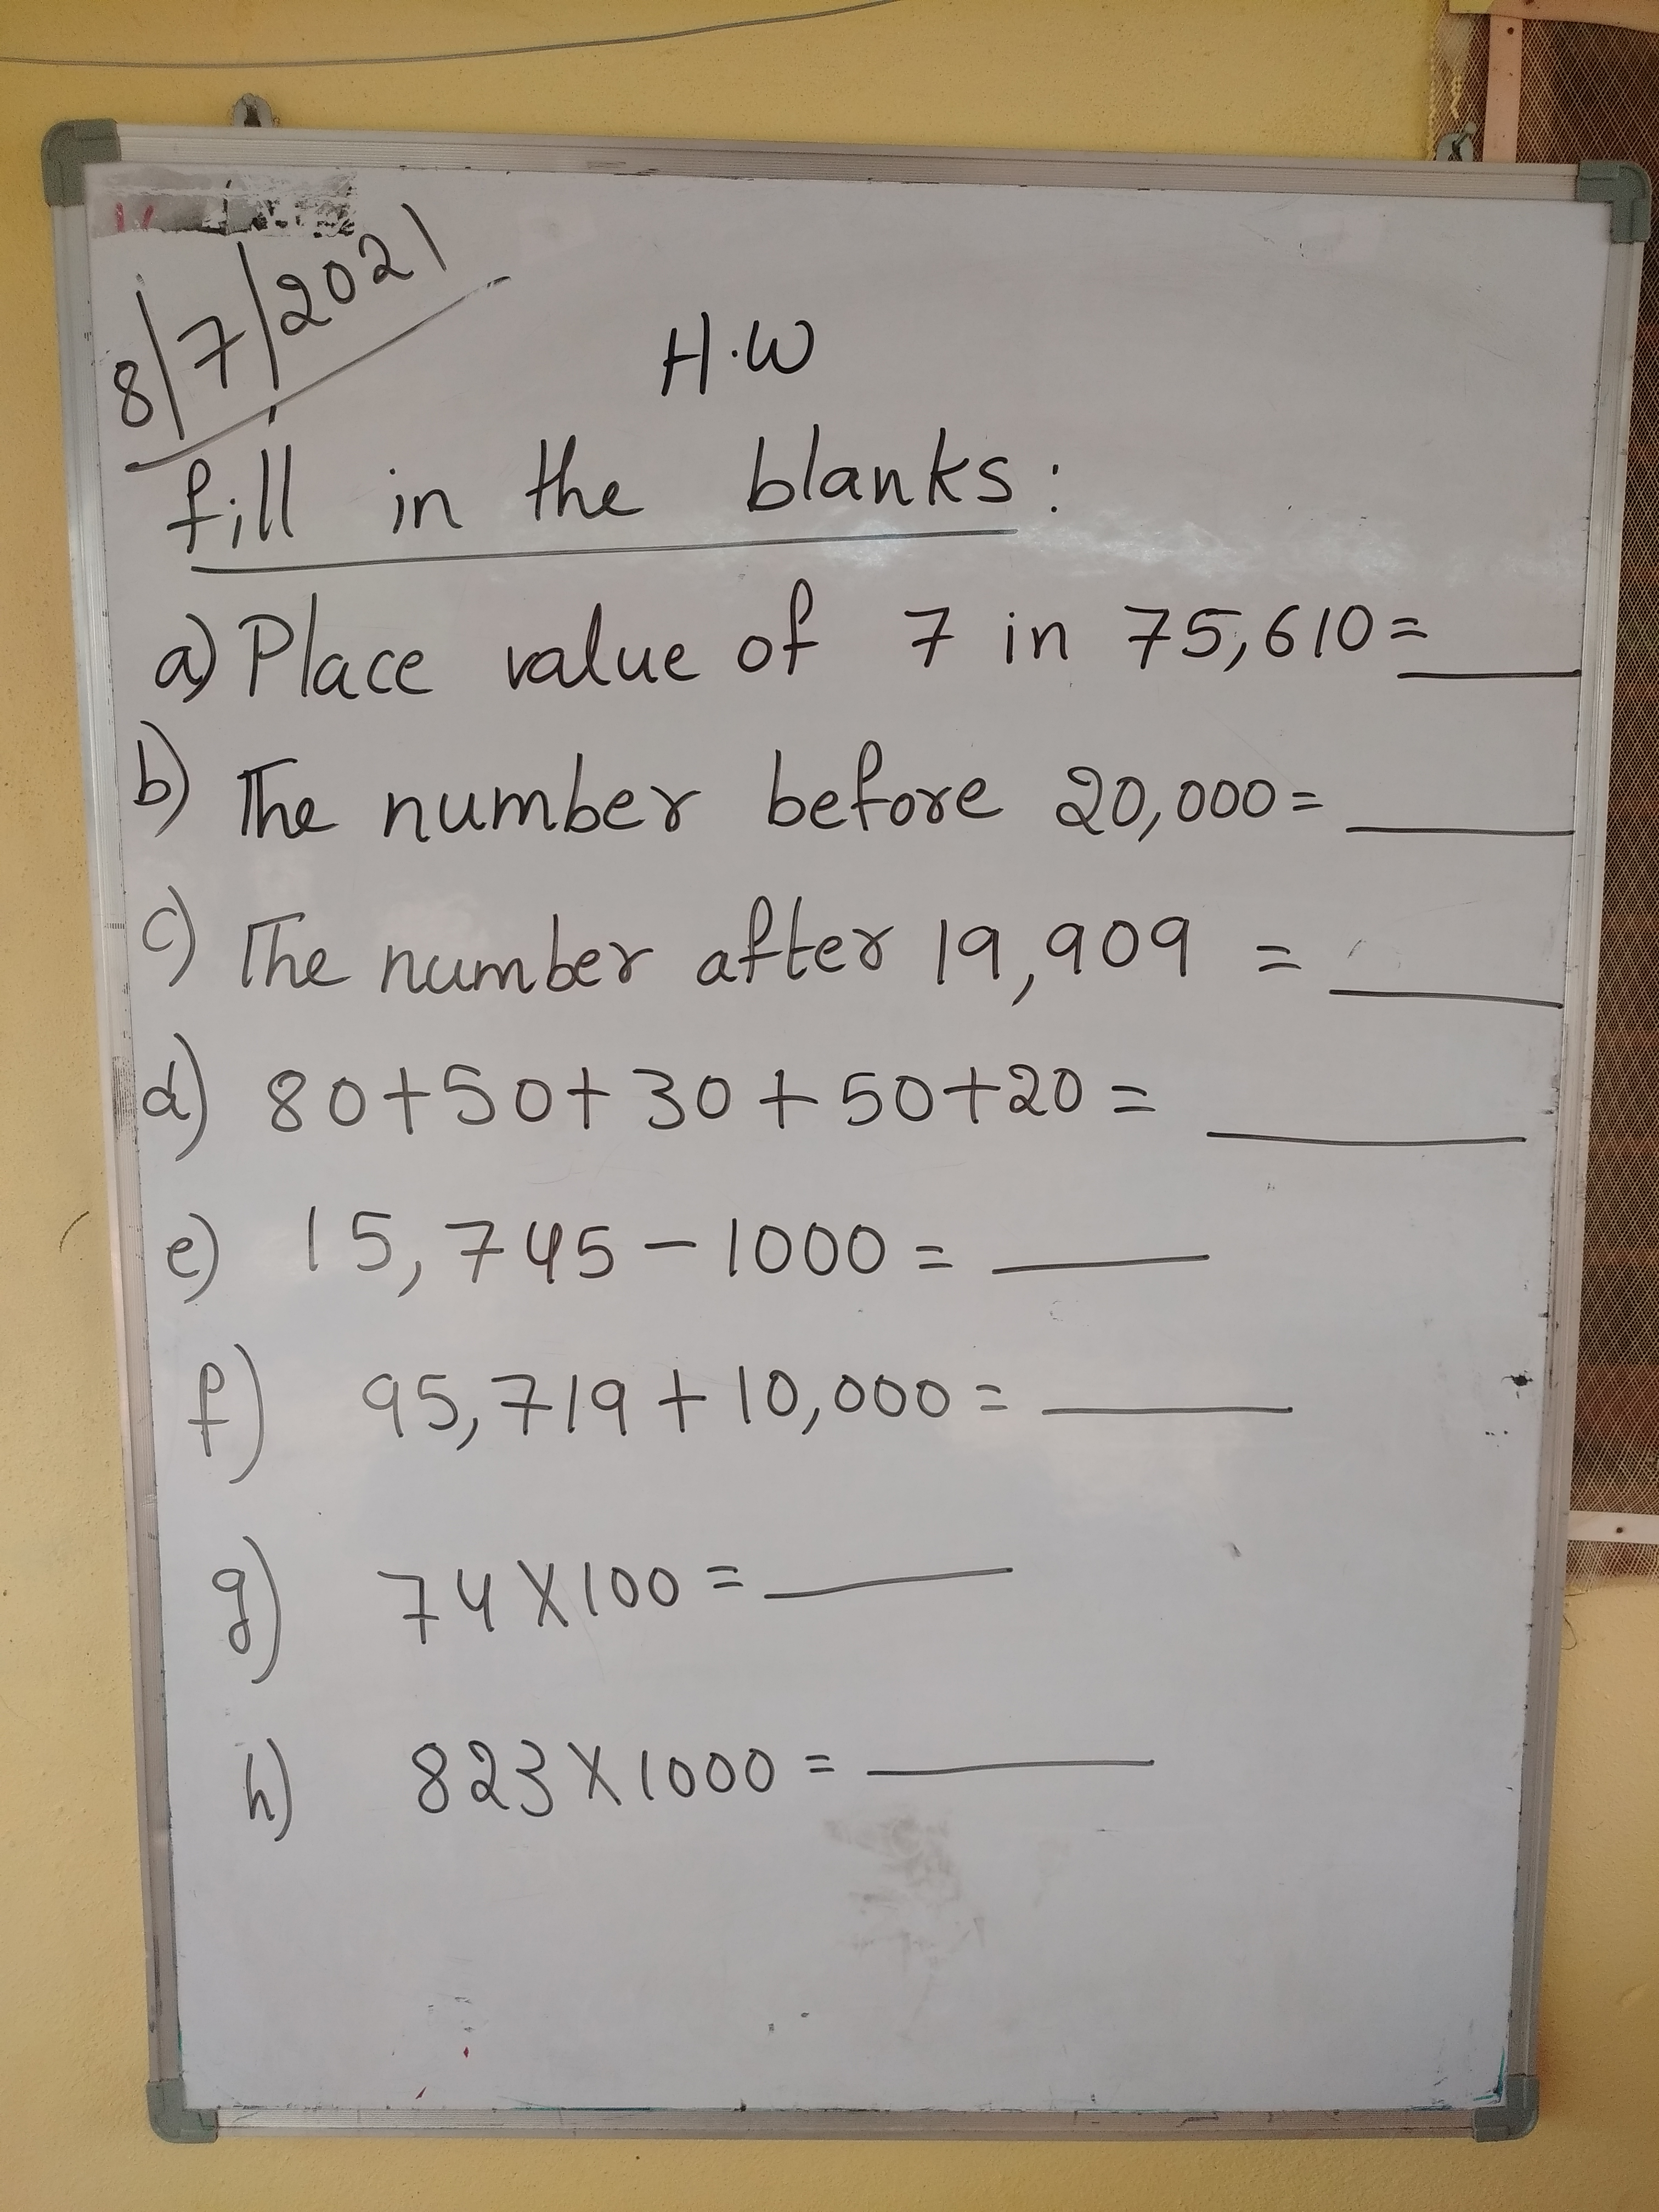 8/7/2021
H.W
fill in the blanks:
a) Place value of 7 in 75,610= ____
b) The number before 20,000= ____
c) The number after 19,909 = ____
d) 80+50+30+50+20= ____
e) 15,745-1000= ____
f) 95,719+10,000= ____
g) 74X100= ____
h) 823X1000= ____